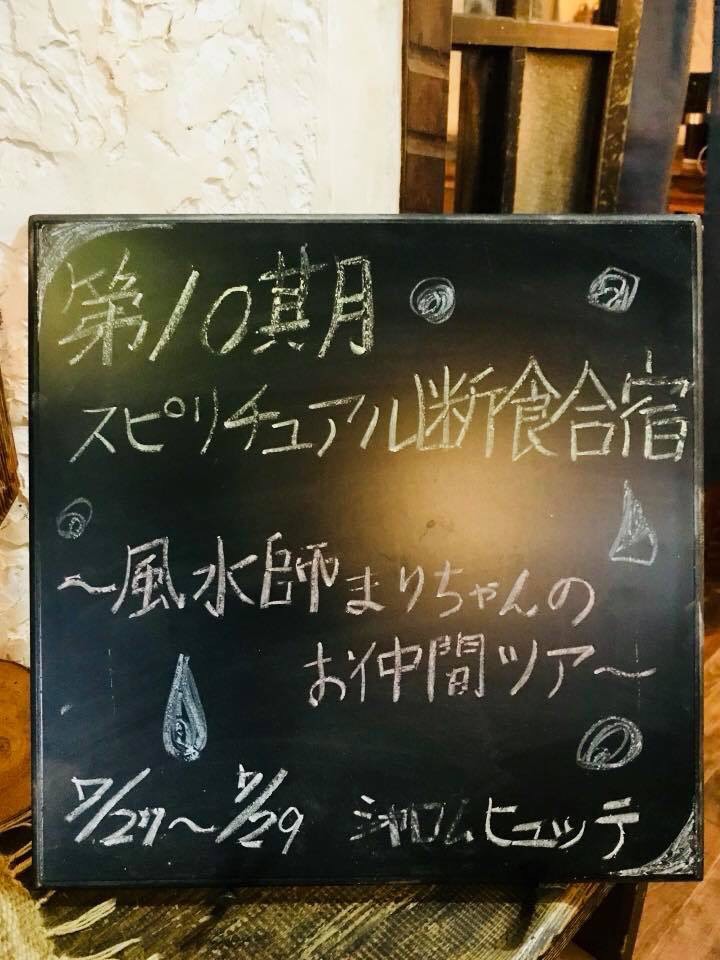 第10期月
スピリチュアル断食合宿
～風水師まりちゃんの
お仲間ツア～
7/27～7/29 シャロムヒュッテ